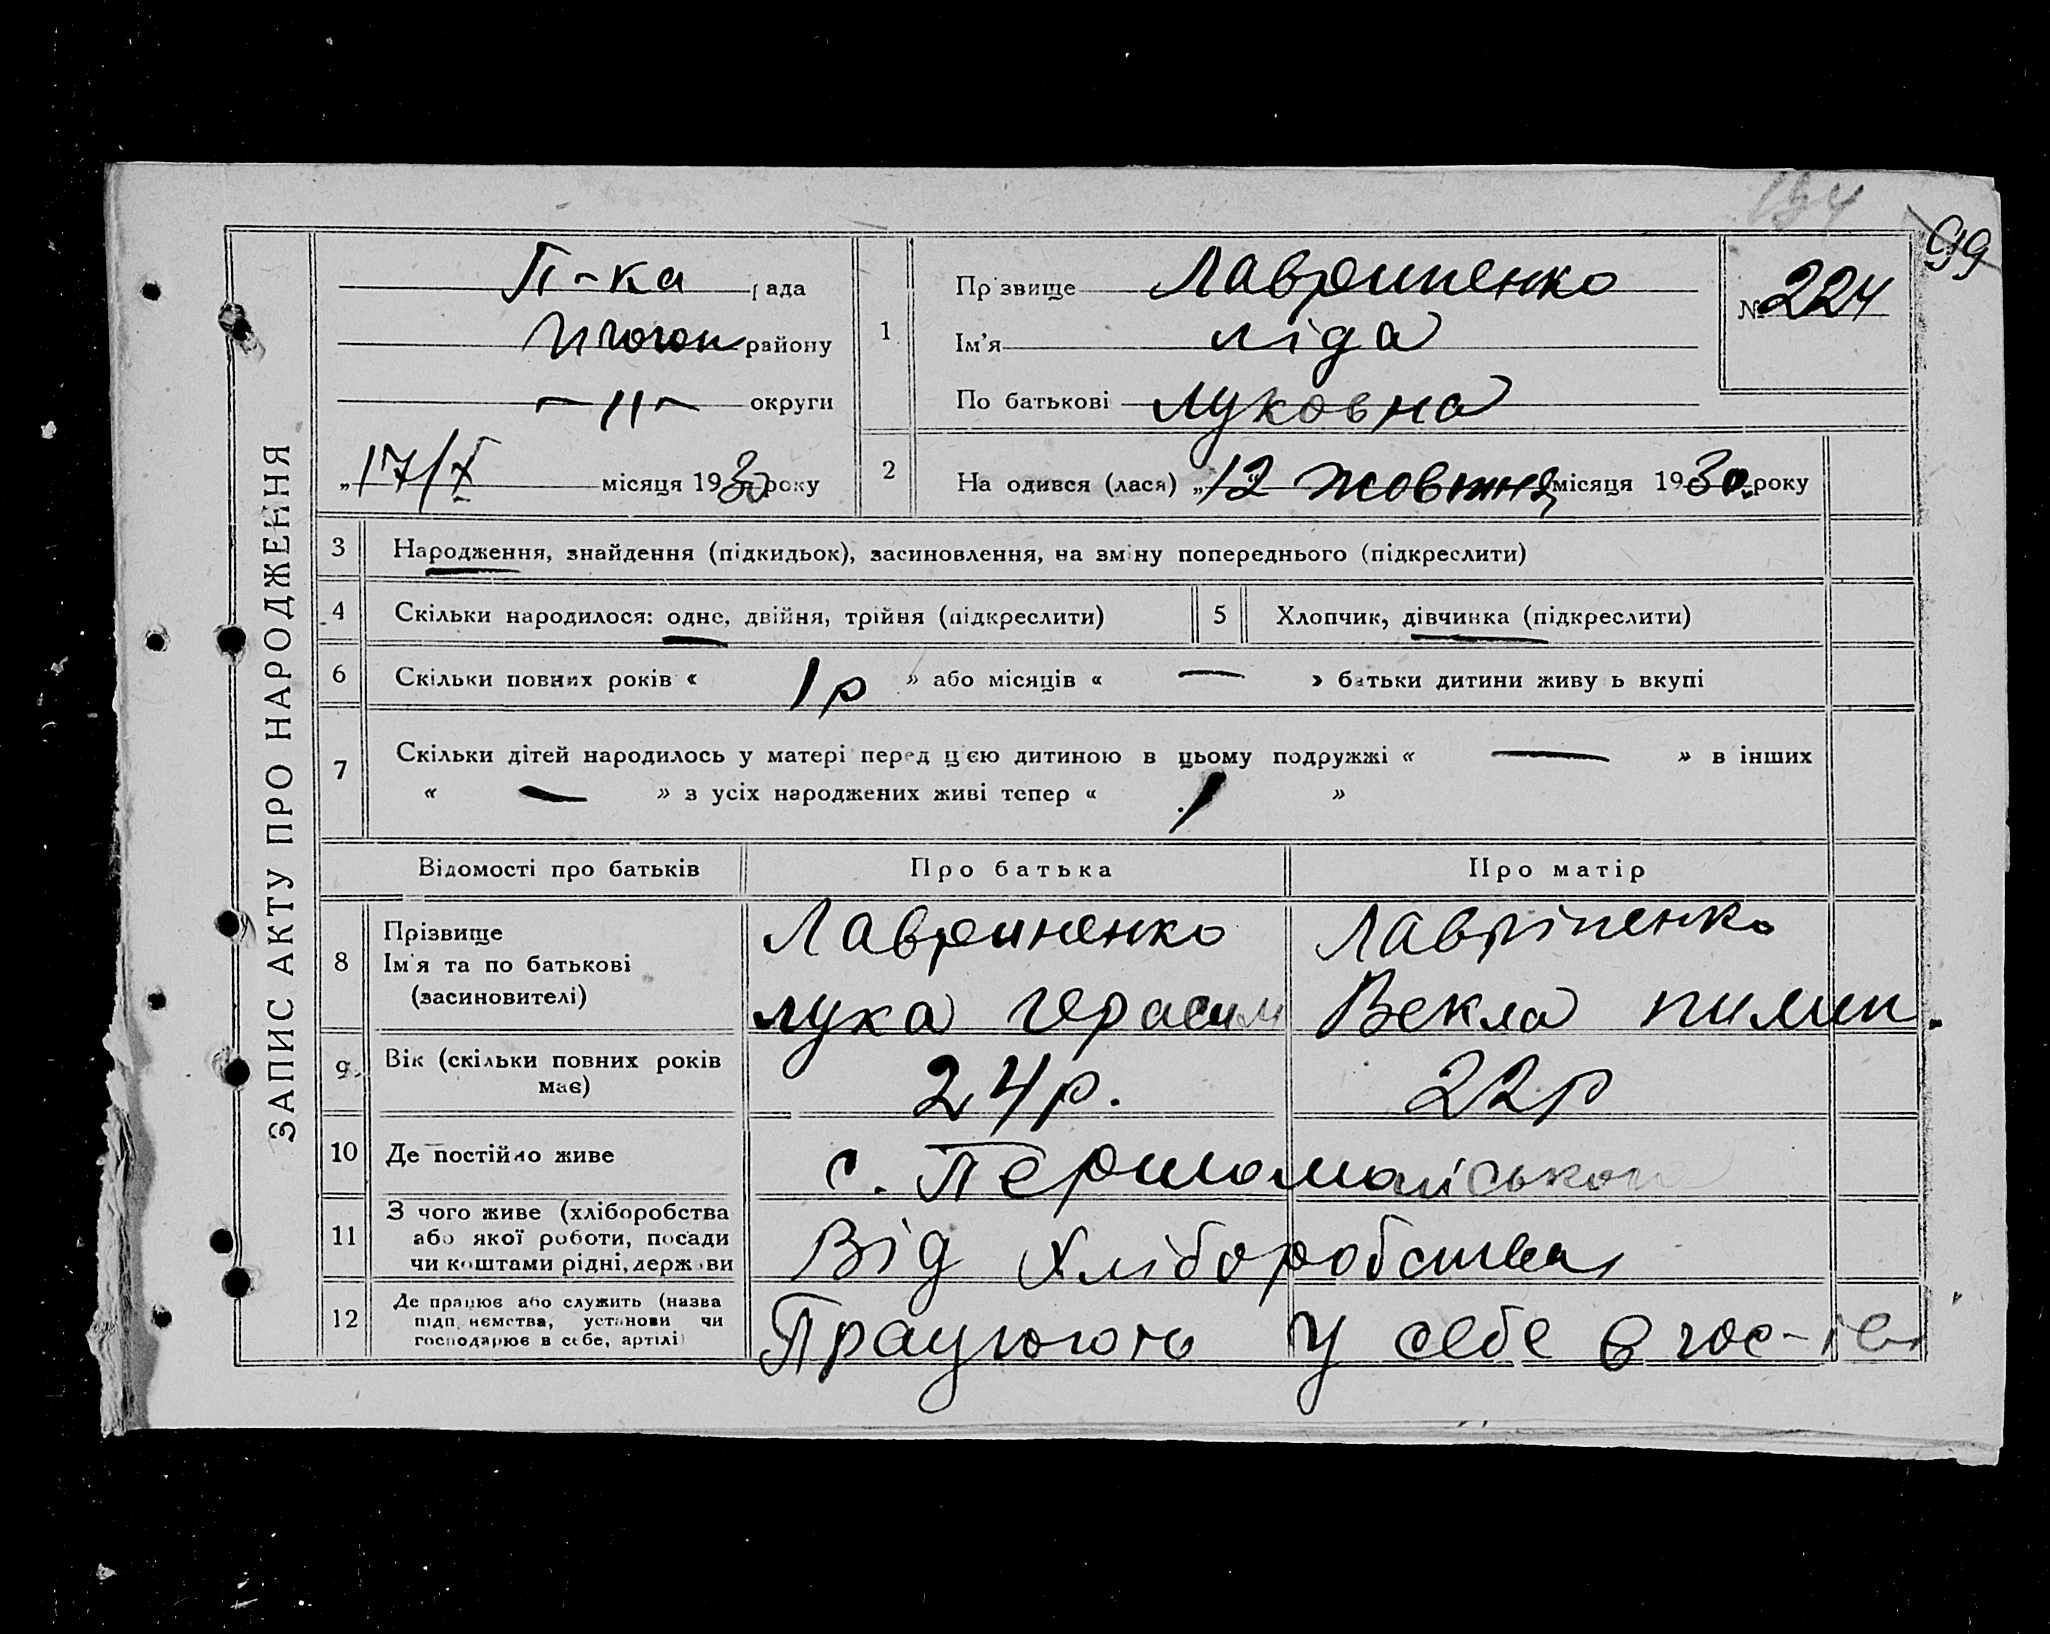 99
ЗАПИС АКТУ ПРО НАРОДЖЕННЯ
П-ка рада
району
-"- округи
"17/X місяця 1930 року
1
Прізвище Лавриненко
Ім'я Ліда
По батькові Луковна
№ 224
2
На одився (лася) "12 жовтня місяця 1930. року
3 Народження, знайдення (підкидьок), засиновлення, на зміну попереднього (підкреслити)
4 Скільки народилося: одне, двійня, трійня (підкреслити)
5 Хлопчик, дівчинка (підкреслити)
6 Скільки повних років « 1р » або місяців « — » батьки дитини живу ь вкупі
7 Скільки дітей народилось у матері перед цією дитиною в цьому подружжі « — » в інших
« — » з усіх народжених живі тепер « 1 »
Відомості про батьків Про батька Про матір
8 Прізвище
Ім'я та по батькові
(засиновителі)
Лавриненко
Лука Герасим
Лавріненко
Векла Пилип.
9. Вік (скільки повних років
має)
24р. 22р
10 Де постійно живе с. Першомайського
11 З чого живе (хліборобства
або якої роботи, посади
чи коштами рідні, держави
Від Хліборобства
12 Де працює або служить (назва
підп иємства, установи чи
господарює в себе, артілі)
Працюють у себе в гос-